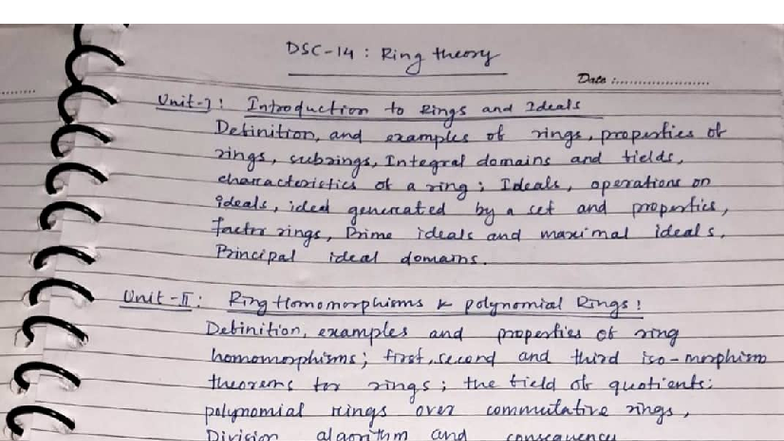 DSC-14 : Ring theory
Date :........................
Unit-I : Introduction to Rings and Ideals
Definition, and examples of rings, properties of
rings, subrings, Integral domains and fields,
characteristics of a ring ; Ideals, operations on
ideals, ideal generated by a set and properties,
factor rings, Prime ideals and maximal ideals,
Principal ideal domains.
Unit-II : Ring Homomorphisms & polynomial Rings :
Definition, examples and properties of ring
homomorphisms ; first, second and third iso-morphism
theorems for rings ; the field of quotients ;
polynomial rings over commutative rings,
Division algorithm and consequency